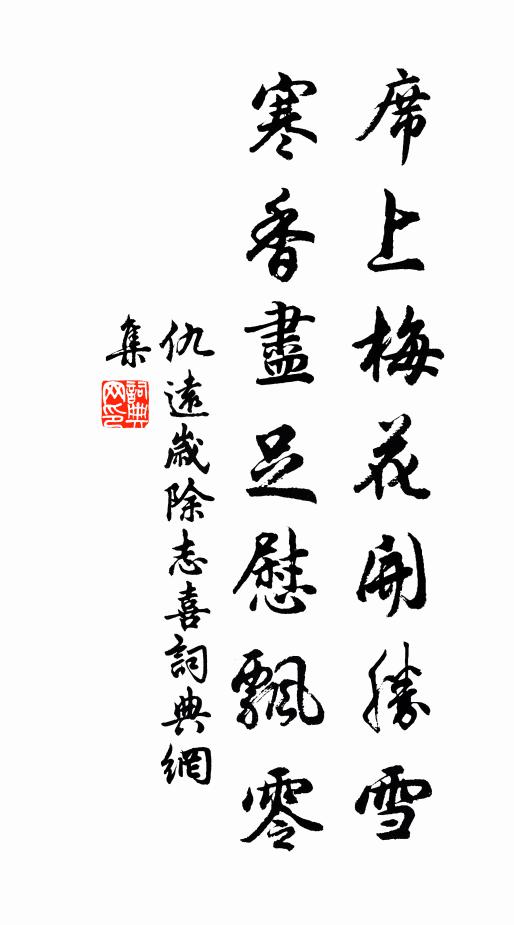 席上梅花開勝雪
寒香盡足慰飄零
仇遠歲除志喜詞典網
集
詞典
网印